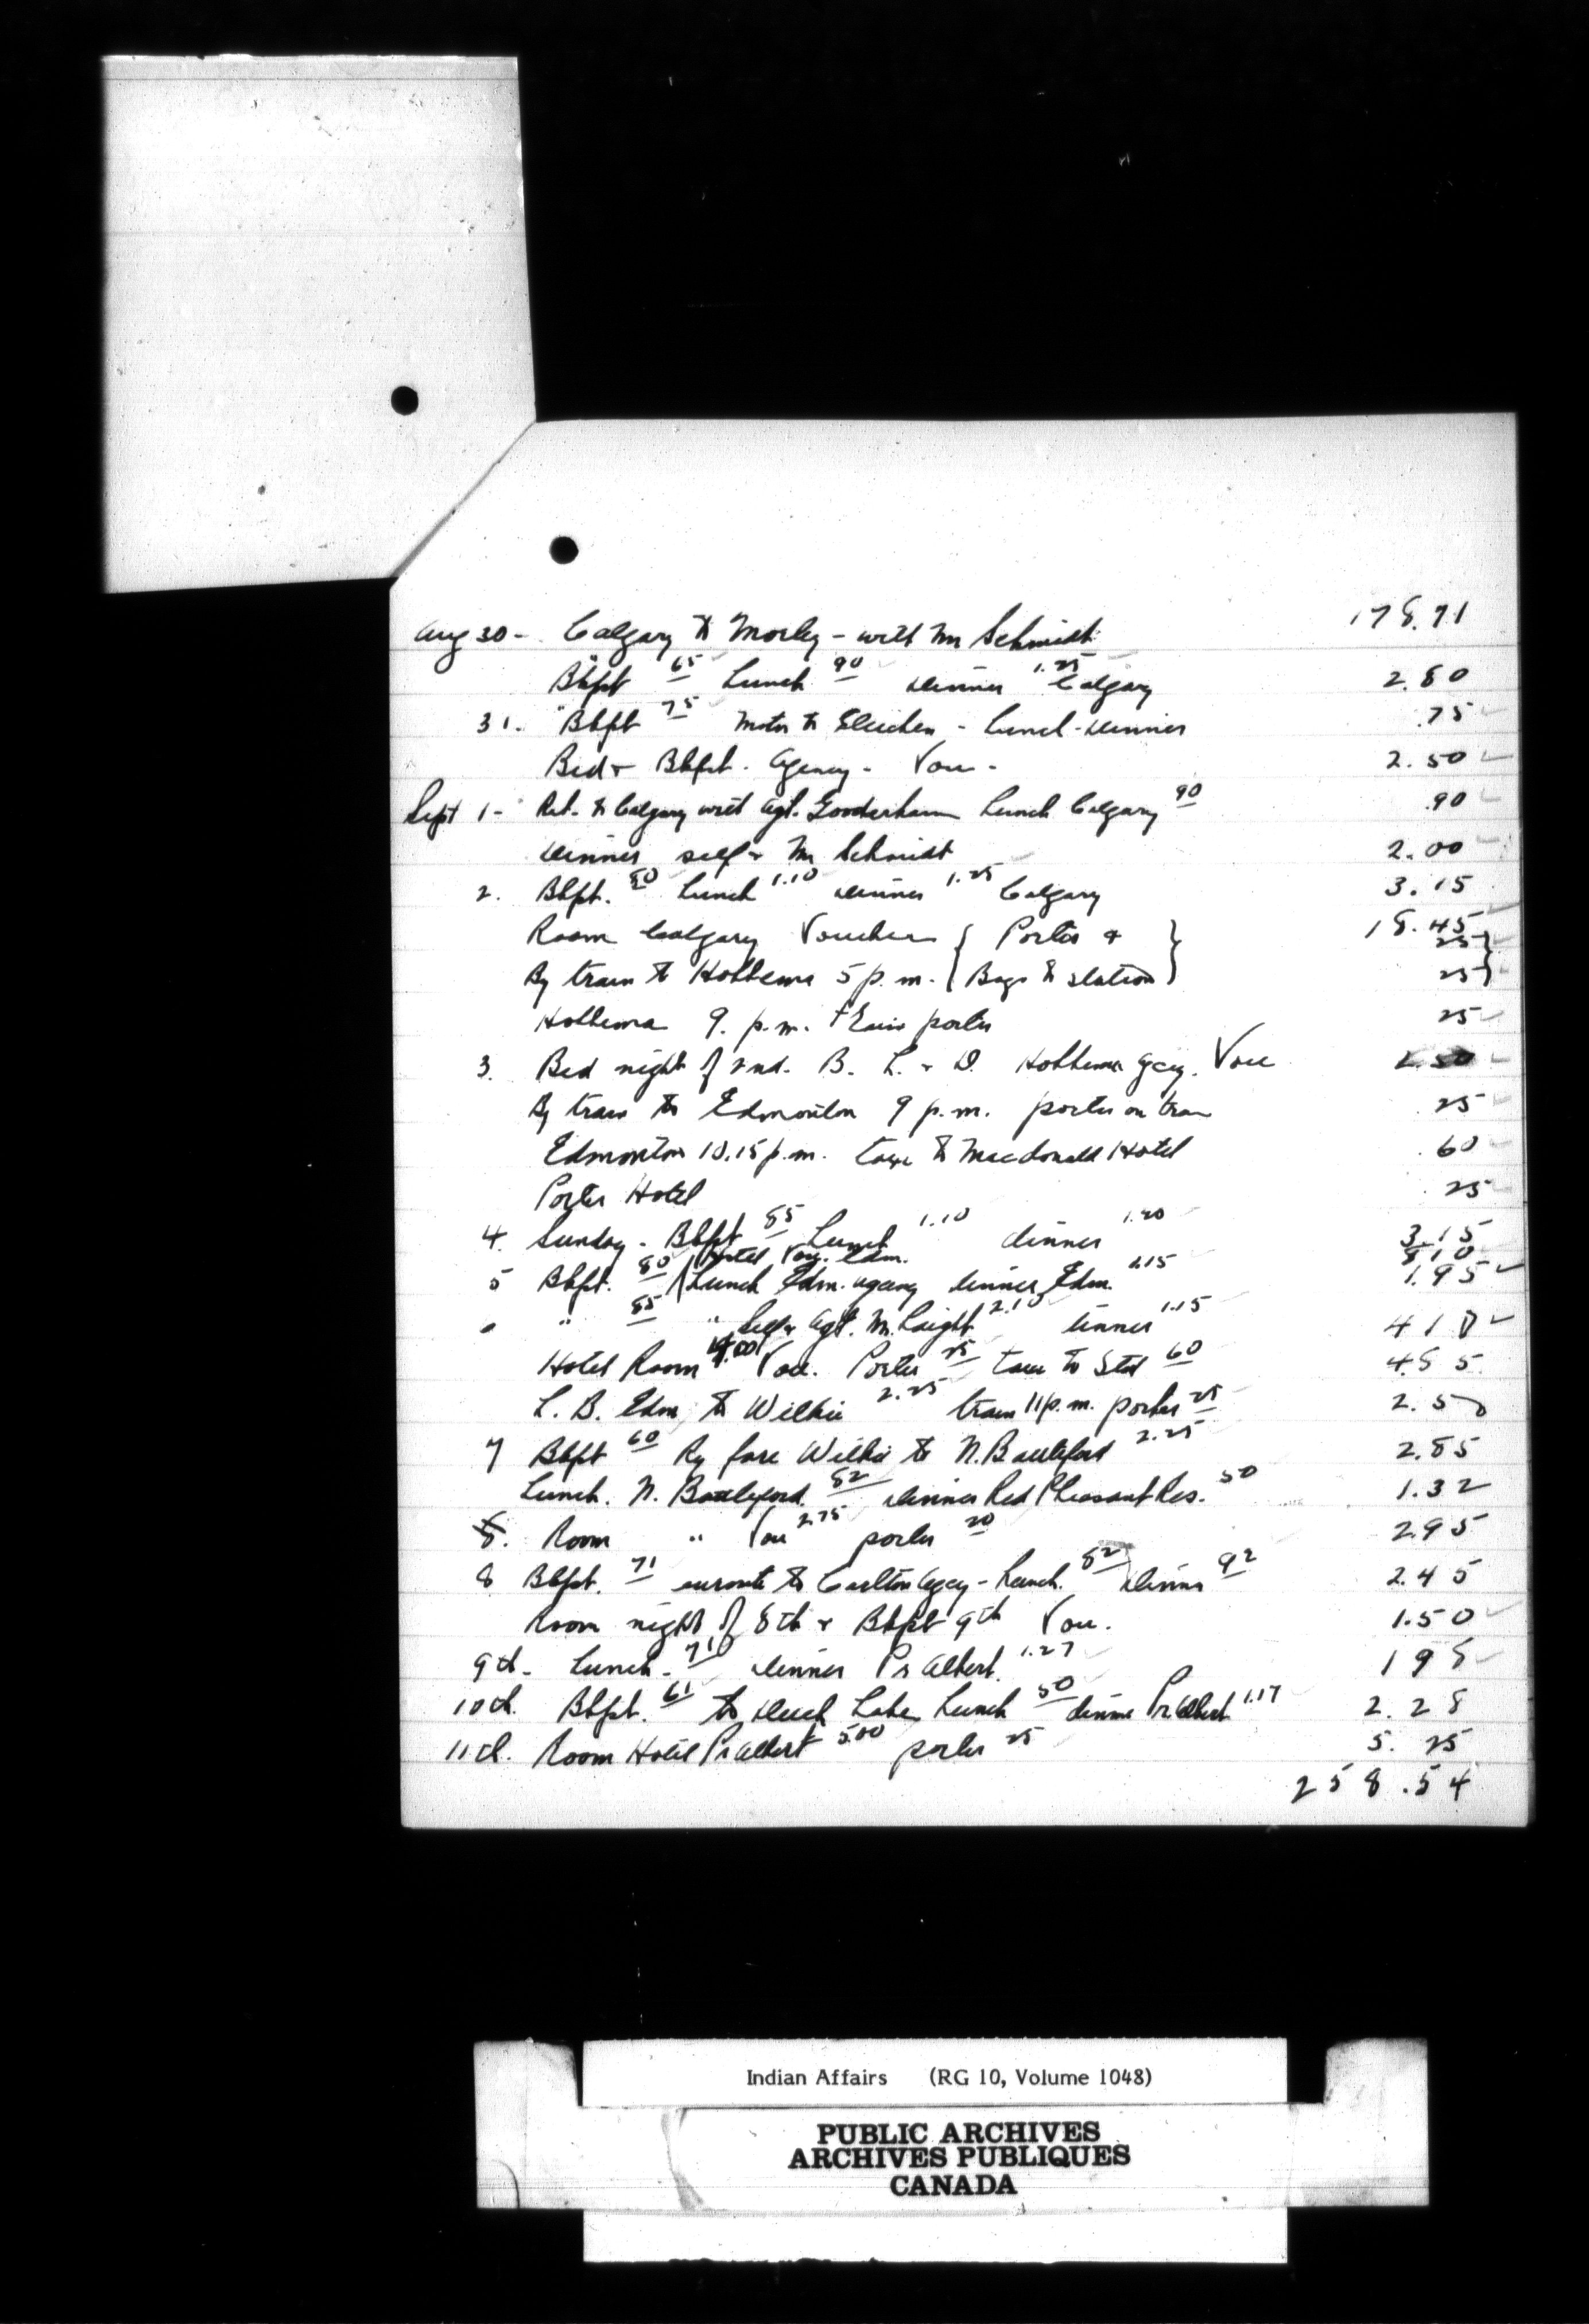 Aug 30 - Calgary to Morley - with Mr Schmidt 178.71
Bkfst 65 Lunch 90 Dinner 1.25 Calgary 2.80
31. Bkfst 75 Motor to Gleichen - Lunch - Dinner .75
Bed & Bkfst. Agency - Vou - 2.50
Sept 1 - Ret. to Calgary with Agt. Gooderham Lunch Calgary 90 .90
Dinner self & Mr Schmidt 2.00
2. Bkfst. 80 Lunch 1.10 Dinner 1.25 Calgary 3.15
Room Calgary Voucher { Porter & } 18.45 25
By train to Hobbema 5 p.m. { Bags to station } 25
Hobbema 9. p.m. train porter 25
3. Bed night of 2nd. B. L. & D. Hobbema Agcy. Vou
By train to Edmonton 9 p.m. porter on train 25
Edmonton 10.15 p.m. taxi to Macdonald Hotel .60
Porter Hotel .25
4. Sunday - Bkfst 85 Lunch 1.10 dinner 1.20 3.15
Hotel Vou. Edm. 8 10
5 Bkfst. 80 Lunch Edm. agency dinner Edm. 1.15 1.95
" 85 " Self & Agt. M. Laight 2.10 dinner 1.15 4 1 0
Hotel Room 4.00 Vou. Porter 25 taxi to Stn 60 4.85
L. B. Edm. to Wilkie 2.25 train 11 p.m. porter 25 2.50
7 Bkfst 60 Ry fare Wilkie to N. Battleford 2.25 2.85
Lunch. N. Battleford. 82 Dinner Red Pheasant Res. 50 1.32
8. Room " Vou 2.75 porter 20 2.95
8 Bkfst. 71 enroute to Carlton Agcy - Lunch. 82 Dinner 92 2.45
Room night of 8th & Bkfst 9th Vou. 1.50
9th - Lunch - 71 Dinner Pr Albert. 1.27 1 9 8
10th. Bkfst. 61 to Duck Lake Lunch 50 dinner Pr Albert 1.17 2.28
11th. Room Hotel Pr Albert 5.00 porter 25 5.25
258.54
Indian Affairs (RG 10, Volume 1048)
PUBLIC ARCHIVES
ARCHIVES PUBLIQUES
CANADA